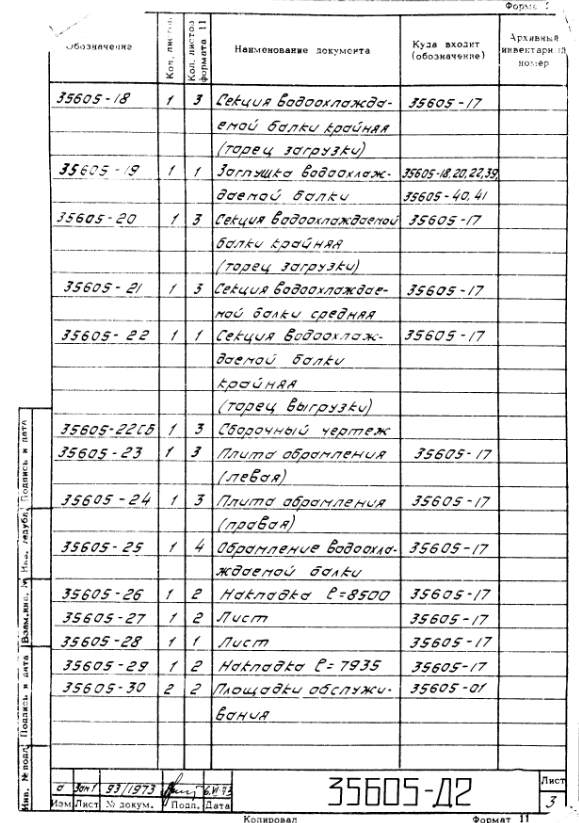 Форма
Обозначение Кол. листов Кол. листов формата 11 Наименование документа Куда входит (обозначение) Архивный инвентарный номер
35605-18 1 3 Секция водоохлажда- 35605-17
емой балки крайняя
(торец загрузки)
35605-19 1 1 Заглушка водоохлаж- 35605-18,20,22,39
даемой балки 35605-40,41
35605-20 1 3 Секция водоохлаждаемой 35605-17
балки крайняя
(торец загрузки)
35605-21 1 3 Секция водоохлаждае- 35605-17
мой балки средняя
35605-22 1 1 Секция водоохлаж- 35605-17
даемой балки
крайняя
(торец выгрузки)
35605-22СБ 1 3 Сборочный чертеж
35605-23 1 3 Плита обрамления 35605-17
(левая)
35605-24 1 3 Плита обрамления 35605-17
(правая)
35605-25 1 4 Обрамление водоохла- 35605-17
ждаемой балки
35605-26 1 2 Накладка ℓ=8500 35605-17
35605-27 1 2 Лист 35605-17
35605-28 1 1 Лист 35605-17
35605-29 1 2 Накладка ℓ=7935 35605-17
35605-30 2 2 Площадки обслужи- 35605-01
вания
Инв. № подл. Подпись и дата Взам.инв. № Инв. №дубл. Подпись и дата
а Зам1 93/1973 6.VI.73
Изм Лист № докум. Подп. Дата
35605-Д2
Лист
3
Копировал Формат 11